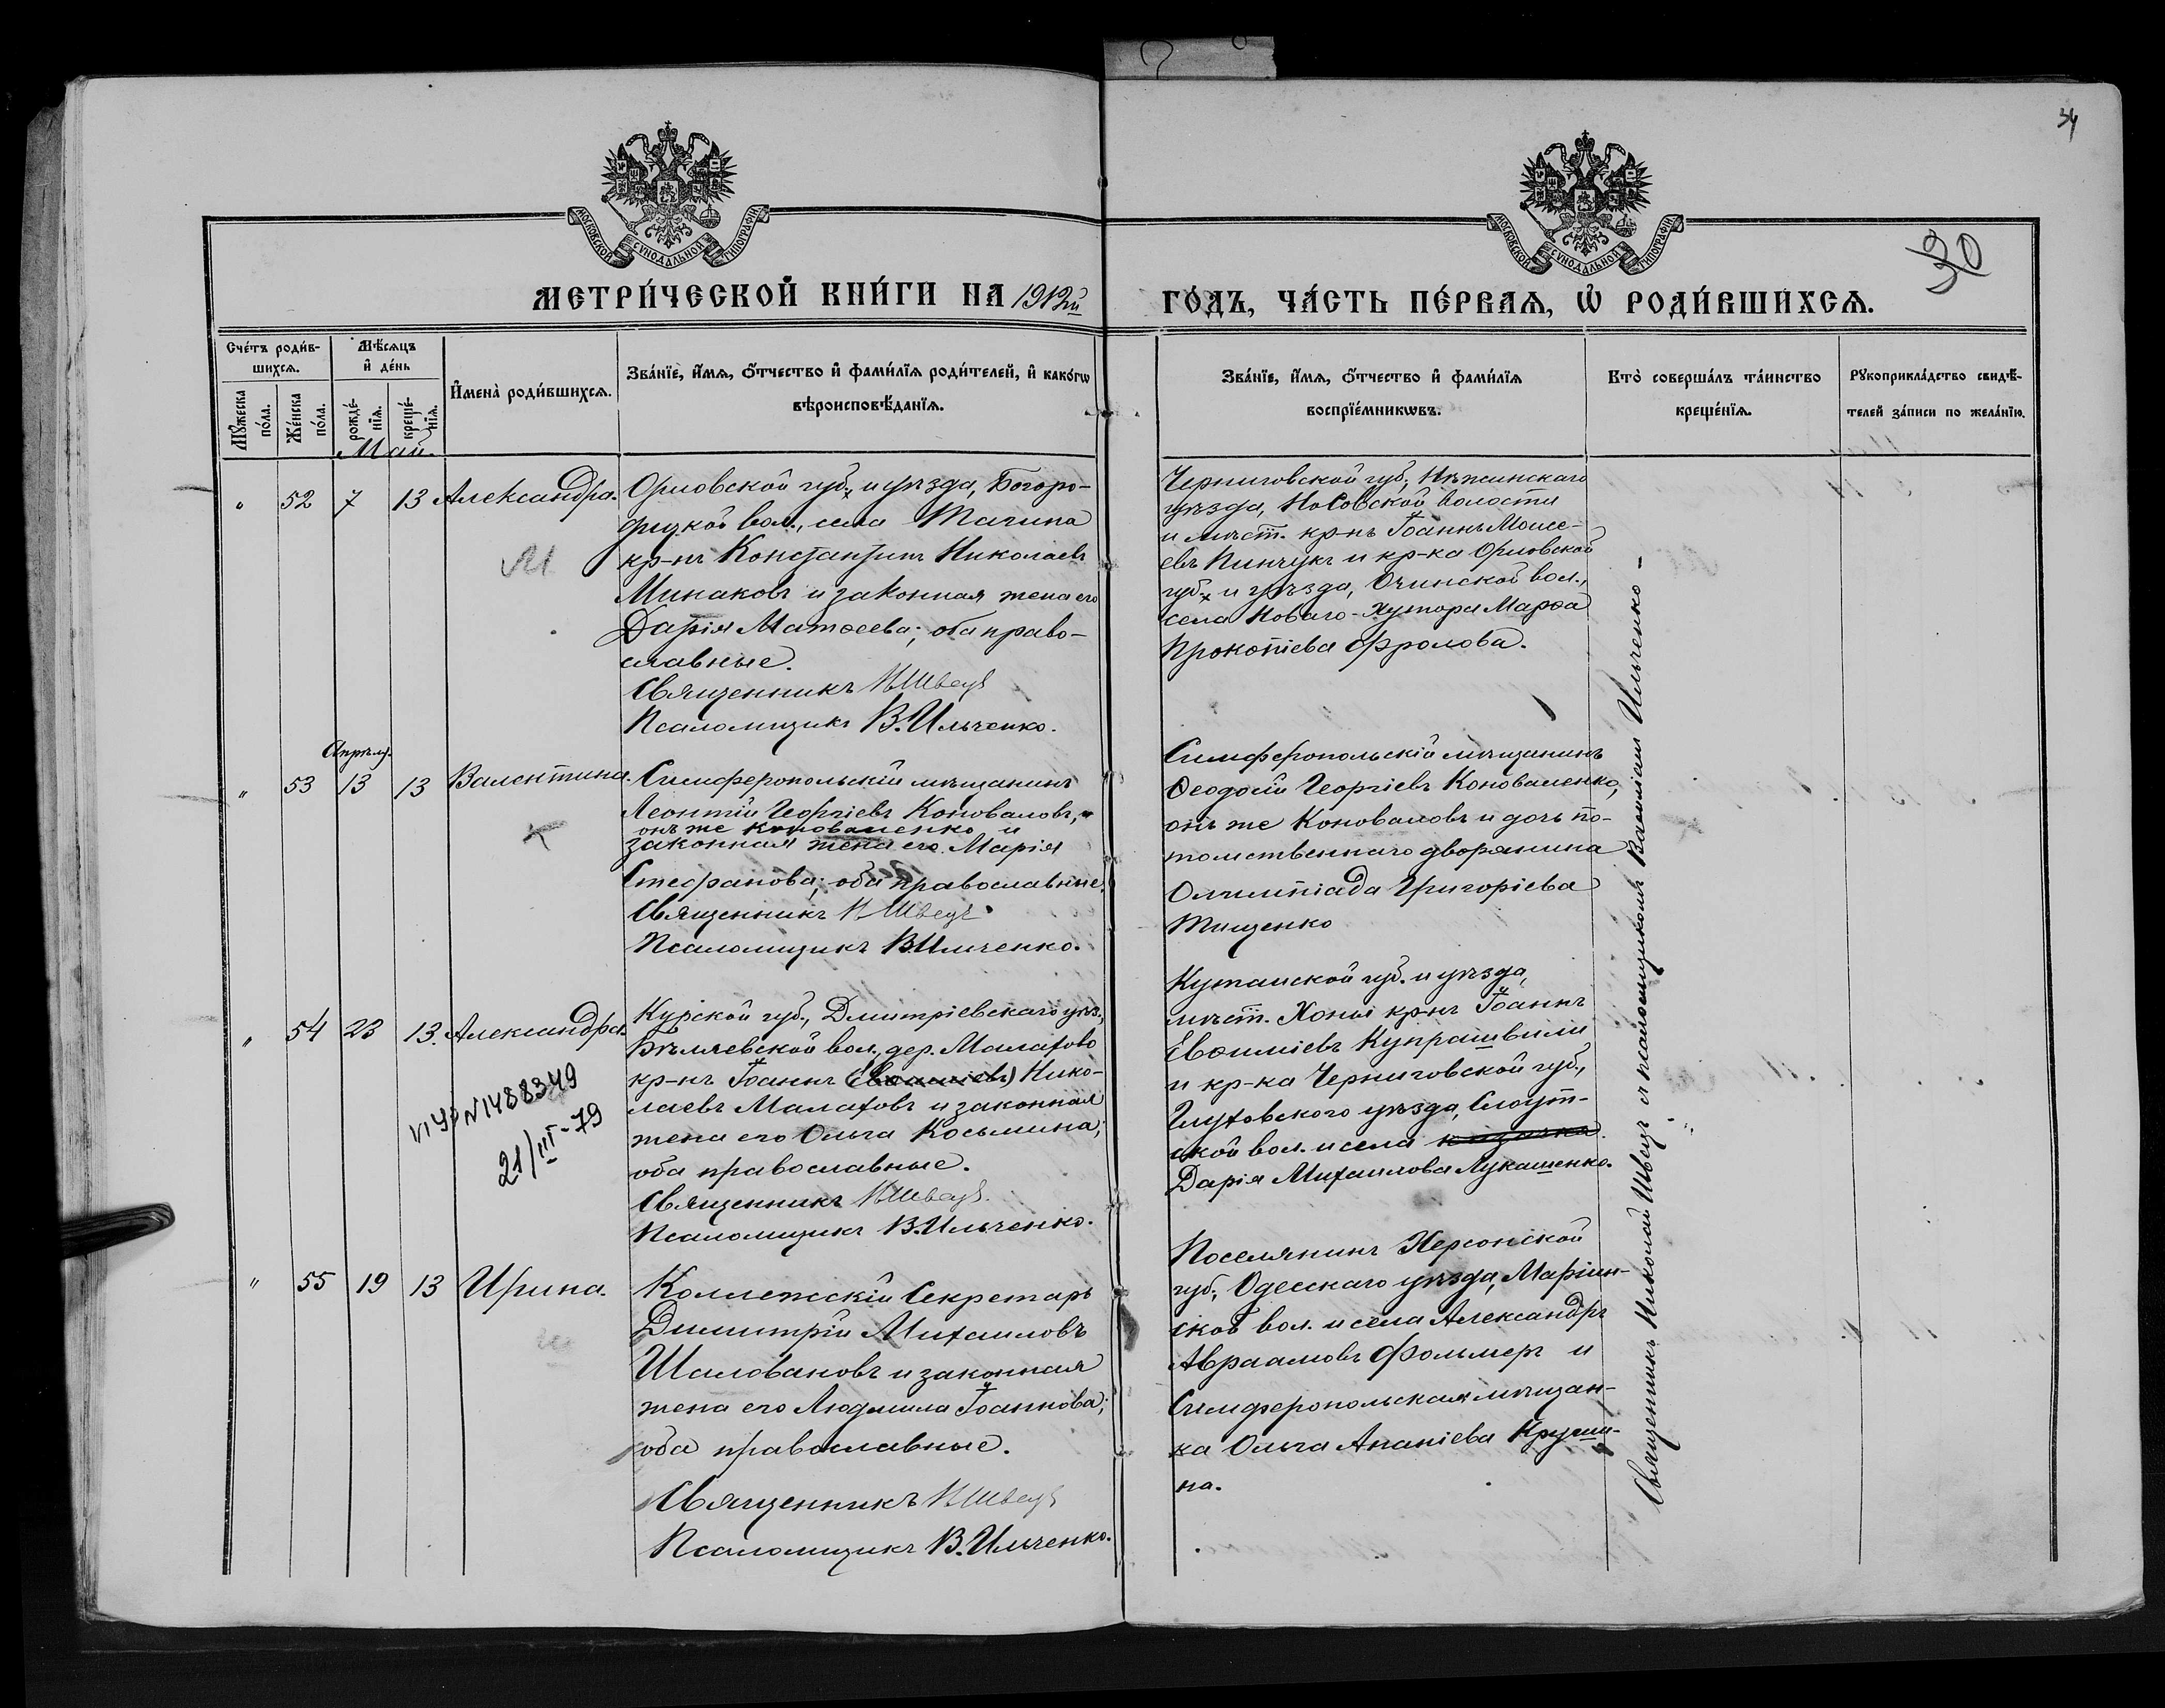 34
30
МОСКОВСКОЙ СѴНОДАЛЬНОЙ ТИПОГРАФІИ.
МОСКОВСКОЙ СѴНОДАЛЬНОЙ ТИПОГРАФІИ.
МЕТРИ́ЧЕСКОЙ КНИ́ГИ НА 1912й
ГО́ДЪ, ЧА́СТЬ ПЕ́РВАЯ, Ѡ҆ РОДИ́ВШИХСЯ.
Сче́тъ роди́в-
шихся.
Мꙋ́жеска
по́ла.
Же́нска
по́ла.
Мѣ́сяцъ
и҆ де́нь
рожде́-
нїя.
креще́-
нїя.
Май.
И҆мена̀ роди́вшихся.
Зва́нїе, и҆́мя, ѻ҆́тчество и҆ фами́лїя роди́телей, и҆ како́гѡ
вѣроисповѣ́данїя.
Зва́нїе, и҆́мя, ѻ҆́тчество и҆ фами́лїя
воспрїе́мникѡвъ.
Кто̀ соверша́лъ та́инство
креще́нїя.
Рꙋкоприкла́дство свидѣ́-
телей за́писи по жела́нїю.
" 52 7 13 Александра.
Орловской губ. и уѣзда, Богоро-
дицкой вол., села Тагина
кр-нъ Константинъ Николаевъ
Минаковъ и законная жена его
Дарія Матѳеева; оба право-
славные.
Священникъ Н Швецъ
Псаломщикъ В. Ильченко.
Черниговской губ., Нѣжинскаго
уѣзда, Носовской волости
и мѣст. кр-нъ Іоаннъ Моисе-
евъ Пинчукъ и кр-ка Орловской
губ. и уѣзда, Очинской вол.,
села Новаго-Хутора Марѳа
Прокопіева Фролова.
Апрѣль.
" 53 13 13 Валентина.
Симферопольскій мѣщанинъ
Леонтій Георгіевъ Коноваловъ,
онъ же Коноваленко и
законная жена его Марія
Стефанова; оба православные.
Священникъ Н Швецъ
Псаломщикъ В.Ильченко.
Симферопольскій мѣщанинъ
Ѳеодосій Георгіевъ Коноваленко,
онъ же Коноваловъ и дочь по-
томственнаго дворянина
Олимпіада Григоріева
Тищенко
" 54 23 13. Александра.
VIЧЯ N 1488349
21/III-79
Курской губ., Дмитріевскаго уѣз.,
Бѣляевской вол., дер. Малахово
кр-нъ Іоаннъ (Евѳиміевъ) Нико-
лаевъ Малаховъ и законная
жена его Ольга Косьмина;
оба православные.
Священникъ Н Швецъ
Псаломщикъ В.Ильченко.
Кутаиской губ. и уѣзда,
мѣст. Хони кр-нъ Іоаннъ
Евѳиміевъ Купрашвили
и кр-ка Черниговской губ.,
Глуховского уѣзда, Слоут-
ской вол. и села казачка
Дарія Михаилова Лукашенко.
" 55 19 13 Ирина.
Коллежскій Секретарь
Димитрій Михаиловъ
Шаловановъ и законная
жена его Людмила Іоаннова;
оба православные.
Священникъ Н Швецъ
Псаломщикъ В. Ильченко.
Поселянинъ Херсонской
губ., Одесскаго уѣзда, Маріин-
ской вол. и села Александръ
Авраамовъ Фоллмеръ и
Симферопольская мѣщан-
ка Ольга Ананіева Круши-
на.
Священникъ Николай Швецъ и псаломщикъ Василій Ильченко -